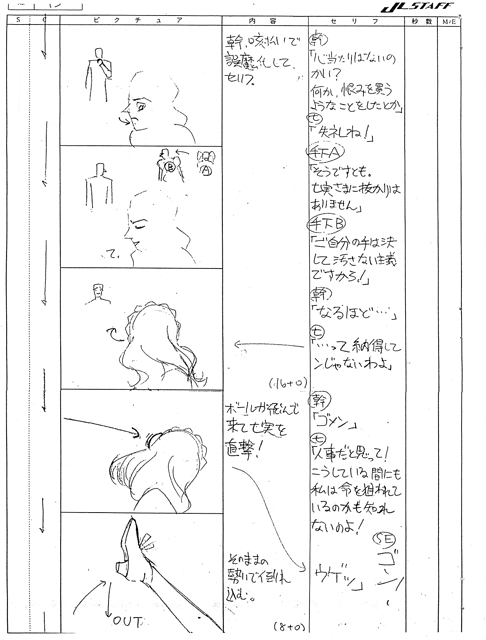 J.C.STAFF
S
C
ピクチュア
内容
セリフ
秒数
M/E
幹、咳払いで
誤魔化して、
セリフ。
幹
「心当たりはないの
かい?
何か、恨みを買う
ようなことをしたとか」
七
「失礼ね!」
手下A
「そうですとも。
七実さまに抜かりは
ありません」
手下B
「ご自分の手は決
して汚さない主義
ですから!」
幹
「なるほど…」
七
「…って納得して
ンじゃないわよ」
B
A
(16+0)
ボールが飛んで
来て七実を
直撃!
幹
「ゴメン」
七
「人事だと思って!
こうしている間にも
私は命を狙われて
いるのかも知れ
ないのよ!
SE
ゴンッ
ウゲッ」
そのままの
勢いで倒れ
込む。
OUT
(8+0)